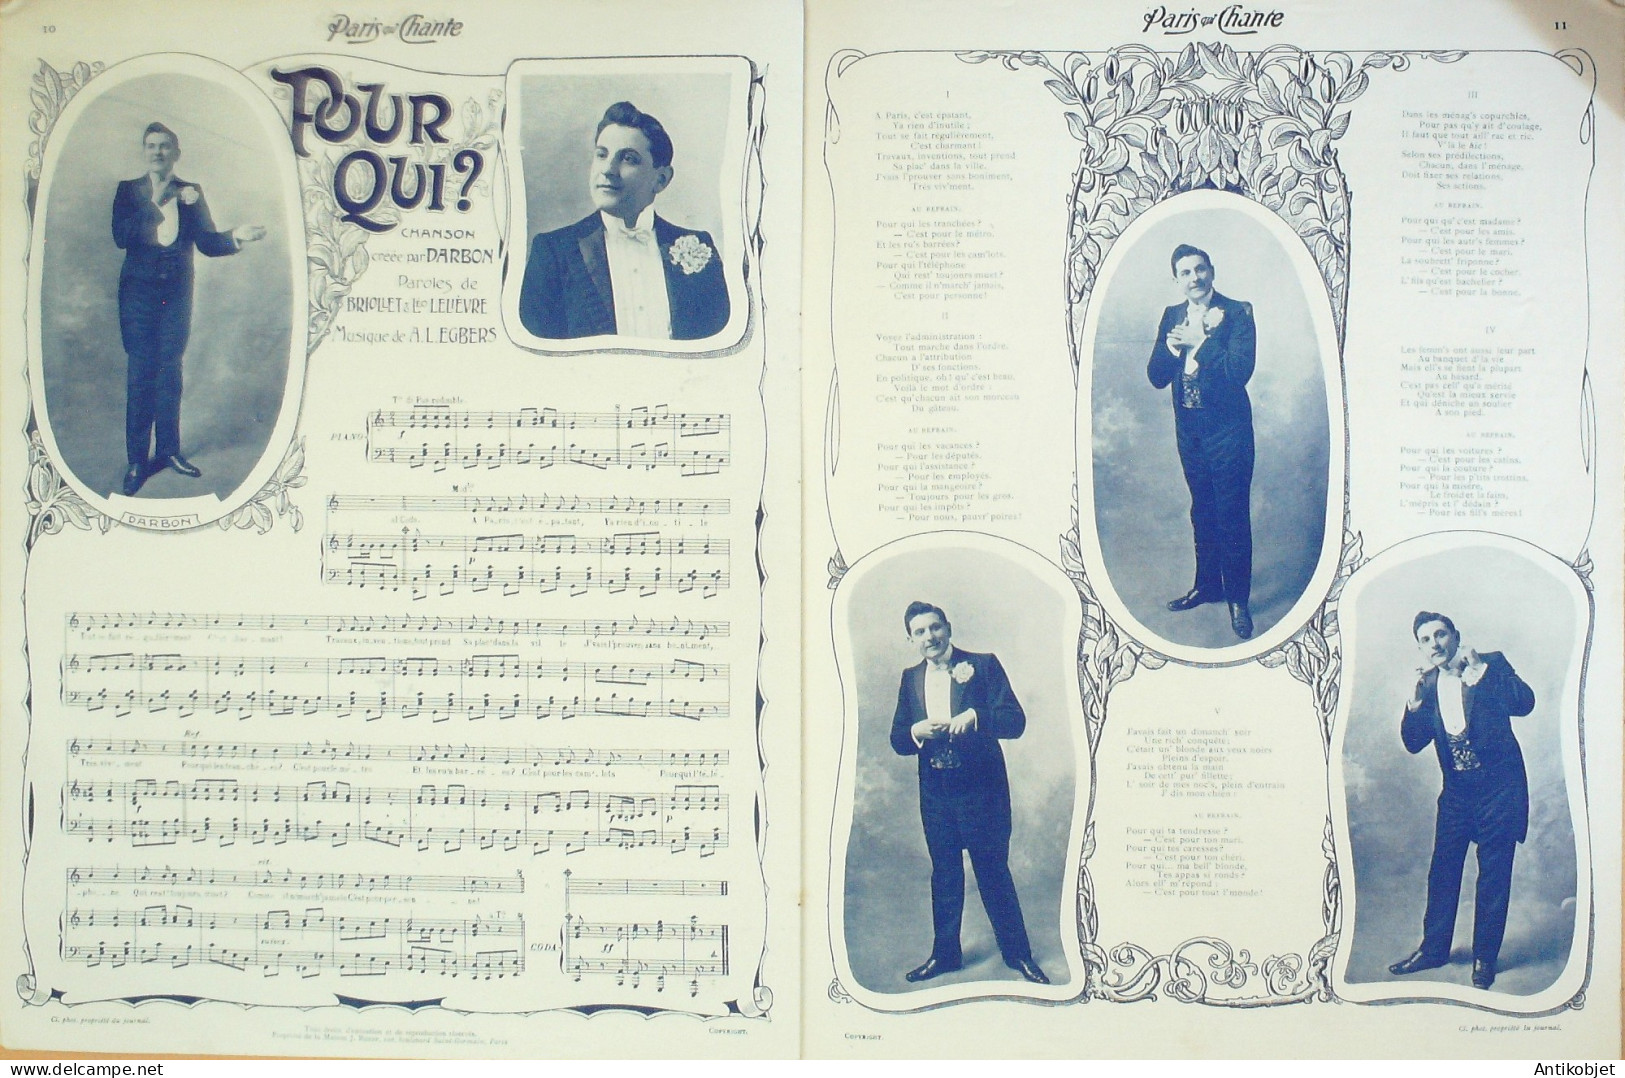 10
Paris qui Chante
POUR
QUI?
CHANSON
créée par DARBON
Paroles de
BRIOLLET & Léo LELIÈVRE
Musique de A.L.EGBERS
DARBON
Tº di Pas redoublé.
PIANO
al Coda.
A Paris, c'est é - pa - tant, Ya rien d'i - nu - ti - le
Tout se fait ré - gu - lièrement C'est char - mant! Travaux, in - ven - tions, tout prend Sa plac' dans la vil - le J'vais l'prouver sans boniment,
Très viv' - ment Ref. Pour qui les tran - chées? C'est pour le mé - tro Et les ru's bar - ré - es? C'est pour les cam' - lots Pour qui l'té - lé -
rit.
- pho - ne Qui rest' toujours muet? Comme il n'march' jamais C'est pour per - son - ne!
suivez.
CODA
ff
Cl. phot. propriété du journal.
Tous droits d'exécution et de reproduction réservés.
COPYRIGHT.
Paris qui Chante
11
I
A Paris, c'est épatant,
Ya rien d'inutile ;
Tout se fait régulièrement,
C'est charmant !
Travaux, inventions, tout prend
Sa plac' dans la ville.
J'vais l'prouver sans boniment,
Très viv'ment.
AU REFRAIN.
Pour qui les tranchées ?
— C'est pour le métro.
Et les ru's barrées ?
— C'est pour les cam'lots.
Pour qui l'téléphone
Qui rest' toujours muet ?
— Comme il n'march' jamais,
C'est pour personne !
II
Voyez l'administration :
Tout marche dans l'ordre,
Chacun a l'attribution
D' ses fonctions.
En politique, oh ! qu' c'est beau,
Voilà le mot d'ordre :
C'est qu'chacun ait son morceau
Du gâteau.
AU REFRAIN.
Pour qui les vacances ?
— Pour les députés.
Pour qui l'assistance ?
— Pour les employés.
Pour qui la mangeoire ?
— Toujours pour les gros.
Pour qui les impôts ?
— Pour nous, pauvr' poires !
III
Dans les ménag's copurchics,
Pour pas qu'y ait d'coulage,
Il faut que tout aill' rac et ric.
V'là le hic !
Selon ses prédilections,
Chacun, dans l'ménage,
Doit fixer ses relations,
Ses actions.
AU REFRAIN.
Pour qui qu' c'est madame ?
— C'est pour les amis.
Pour qui les autr's femmes ?
— C'est pour le mari.
La soubrett' friponne ?
— C'est pour le cocher.
L' fils qu'est bachelier ?
— C'est pour la bonne.
IV
Les femm's ont aussi leur part
Au banquet d' la vie
Mais ell's se fient la plupart
Au hasard.
C'est pas cell' qu'a mérité
Qu'est la mieux servie
Et qui déniche un soulier
A son pied.
AU REFRAIN.
Pour qui les voitures ?
— C'est pour les catins,
Pour qui la couture ?
— Pour les p'tits trottins.
Pour qui la misère,
Le froid et la faim,
L'mépris et l' dédain ?
— Pour les fill's mères !
V
J'avais fait un dimanch' soir
Une rich' conquête ;
C'était un' blonde aux yeux noirs
Pleins d'espoir.
J'avais obtenu la main
De cett' pur' fillette ;
L' soir de mes noc's, plein d'entrain
J' dis mon chien :
AU REFRAIN.
Pour qui ta tendresse ?
— C'est pour ton mari.
Pour qui tes caresses ?
— C'est pour ton chéri.
Pour qui... ma bell' blonde,
Tes appas si ronds ?
Alors ell' m'répond :
— C'est pour tout l'monde !
COPYRIGHT.
Cl. phot. propriété du journal.
Antikobjet